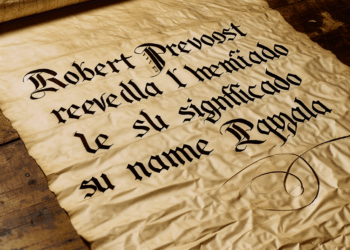 Robert Prevoost
reevella l'hemiiado
le slı significado
su naıme Papzala